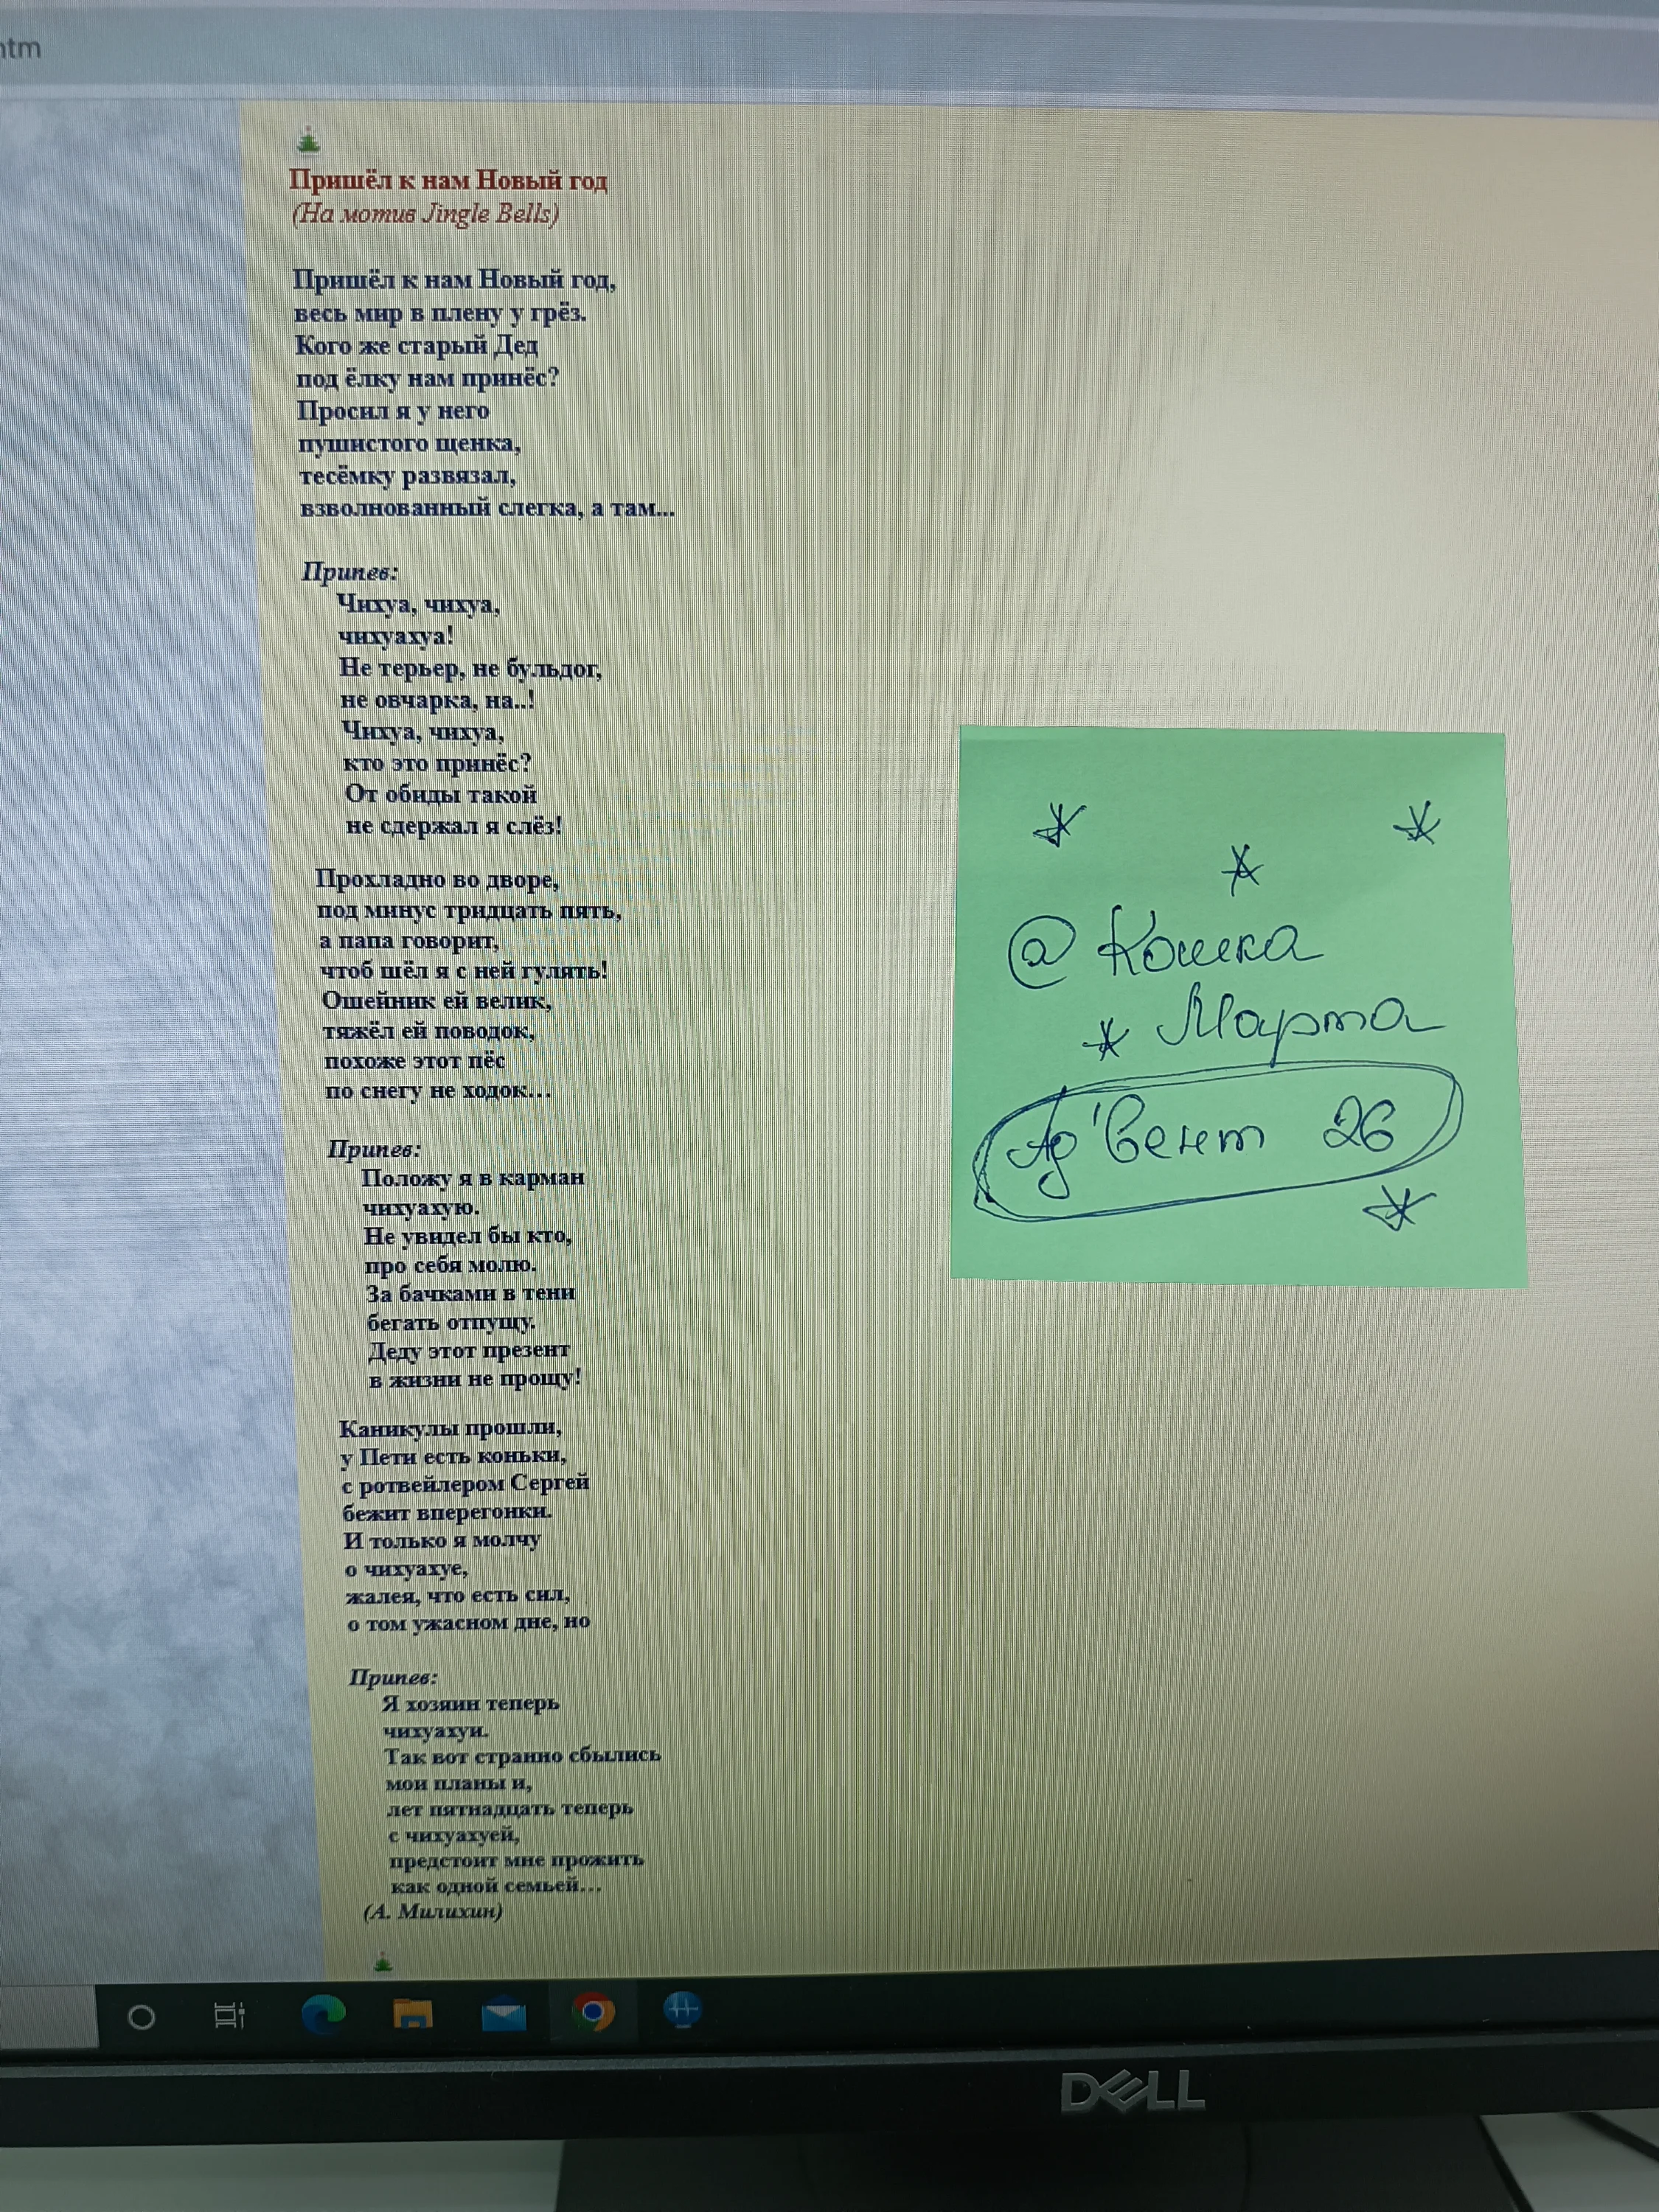 htm
Пришёл к нам Новый год
(На мотив Jingle Bells)
Пришёл к нам Новый год,
весь мир в плену у грёз.
Кого же старый Дед
под ёлку нам принёс?
Просил я у него
пушистого щенка,
тесёмку развязал,
взволнованный слегка, а там...
Припев:
Чихуа, чихуа,
чихуахуа!
Не терьер, не бульдог,
не овчарка, на..!
Чихуа, чихуа,
кто это принёс?
От обиды такой
не сдержал я слёз!
Прохладно во дворе,
под минус тридцать пять,
а папа говорит,
чтоб шёл я с ней гулять!
Ошейник ей велик,
тяжёл ей поводок,
похоже этот пёс
по снегу не ходок...
Припев:
Положу я в карман
чихуахую.
Не увидел бы кто,
про себя молю.
За бачками в тени
бегать отпущу.
Деду этот презент
в жизни не прощу!
Каникулы прошли,
у Пети есть коньки,
с ротвейлером Сергей
бежит вперегонки.
И только я молчу
о чихуахуе,
жалея, что есть сил,
о том ужасном дне, но
Припев:
Я хозяин теперь
чихуахуи.
Так вот странно сбылись
мои планы и,
лет пятнадцать теперь
с чихуахуей,
предстоит мне прожить
как одной семьей...
(А. Милихин)
@ Кошка
Марта
Ад'вент 26
DELL